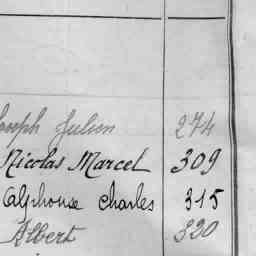 Joseph Julien 274
Nicolas Marcel 309
Alphonse Charles 315
Albert 320